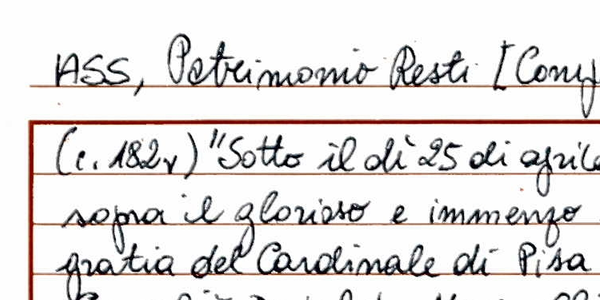 ASS, Patrimonio Resti [Conf
(c. 182v) "Sotto il dì 25 di aprile
sopra il glorioso e immenso
gratia del Cardinale di Pisa